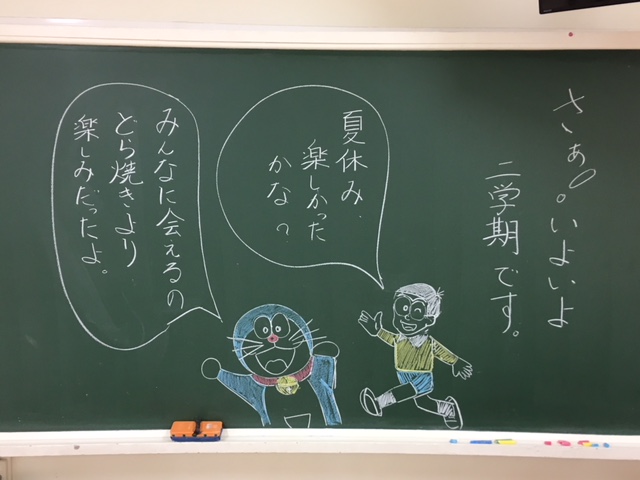 さぁ。いよいよ
二学期です。
夏休み.
楽しかった
かな？
みんなに会えるの
どら焼きより
楽しみだったよ。